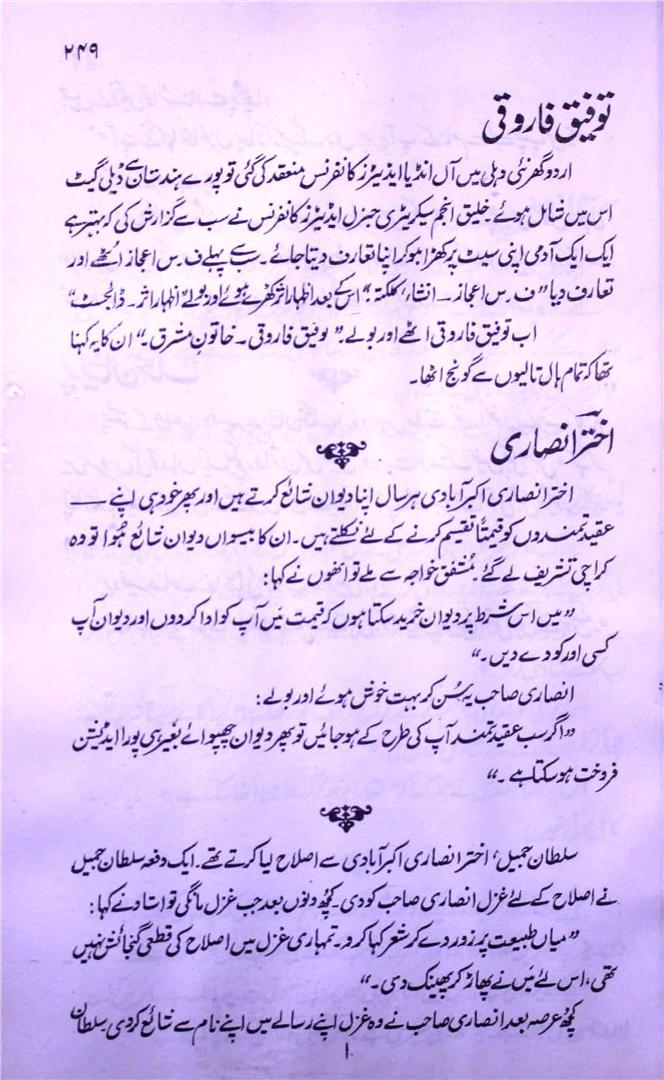 ۲۴۹
توفیق فاروقی
اردو گھر نئی دہلی میں آل انڈیا ایڈیٹرز کانفرنس منعقد کی گئی تو پورے ہندستان سے ڈیلی گیٹ
اس میں شامل ہوئے۔ خلیق انجم سیکریٹری جنرل ایڈیٹرز کانفرنس نے سب سے گزارش کی کہ بہتر ہے
ایک ایک آدمی اپنی سیٹ پر کھڑا ہو کر اپنا تعارف دیتا جائے۔ سب سے پہلے ف۔س اعجاز اٹھے اور
تعارف دیا ”ف۔س اعجاز – انشاء، کلکتہ“ اس کے بعد اظہار اثر کھڑے ہوئے اور بولے اظہار اثر – ڈائجسٹ“
اب توفیق فاروقی اٹھے اور بولے۔ ”توفیق فاروقی – خاتونِ مشرق۔“ ان کا یہ کہنا
تھا کہ تمام ہال تالیوں سے گونج اٹھا۔
اختر انصاری
اختر انصاری اکبر آبادی ہر سال اپنا دیوان شائع کرتے ہیں اور پھر خود ہی اپنے ——
عقیدتمندوں کو قیمتاً تقسیم کرنے کے لئے نکلتے ہیں۔ ان کا بیسواں دیوان شائع ہُوا تو وہ
کراچی تشریف لے گئے۔ مُشفق خواجہ سے ملے تو انھوں نے کہا:
”میں اس شرط پر دیوان خرید سکتا ہوں کہ قیمت میں آپ کو ادا کر دوں اور دیوان آپ
کسی اور کو دے دیں۔“
انصاری صاحب یہ سُن کر بہت خوش ہوئے اور بولے:
”اگر سب عقیدتمند آپ کی طرح کے ہو جائیں تو پھر دیوان چھپوائے بغیر ہی پورا ایڈیشن
فروخت ہو سکتا ہے۔“
سلطان جمیل، اختر انصاری اکبر آبادی سے اصلاح لیا کرتے تھے۔ ایک دفعہ سلطان جمیل
نے اصلاح کے لئے غزل انصاری صاحب کو دی۔ کچھ دنوں بعد جب غزل مانگی تو استاد نے کہا:
”میاں طبیعت پر زور دے کر شعر کہا کرو۔ تمہاری غزل میں اصلاح کی قطعی گنجائش نہیں
تھی، اس لئے میں نے پھاڑ کر پھینک دی۔“
کچھ عرصہ بعد انصاری صاحب نے وہ غزل اپنے رسالے میں اپنے نام سے شائع کر دی۔ سلطان